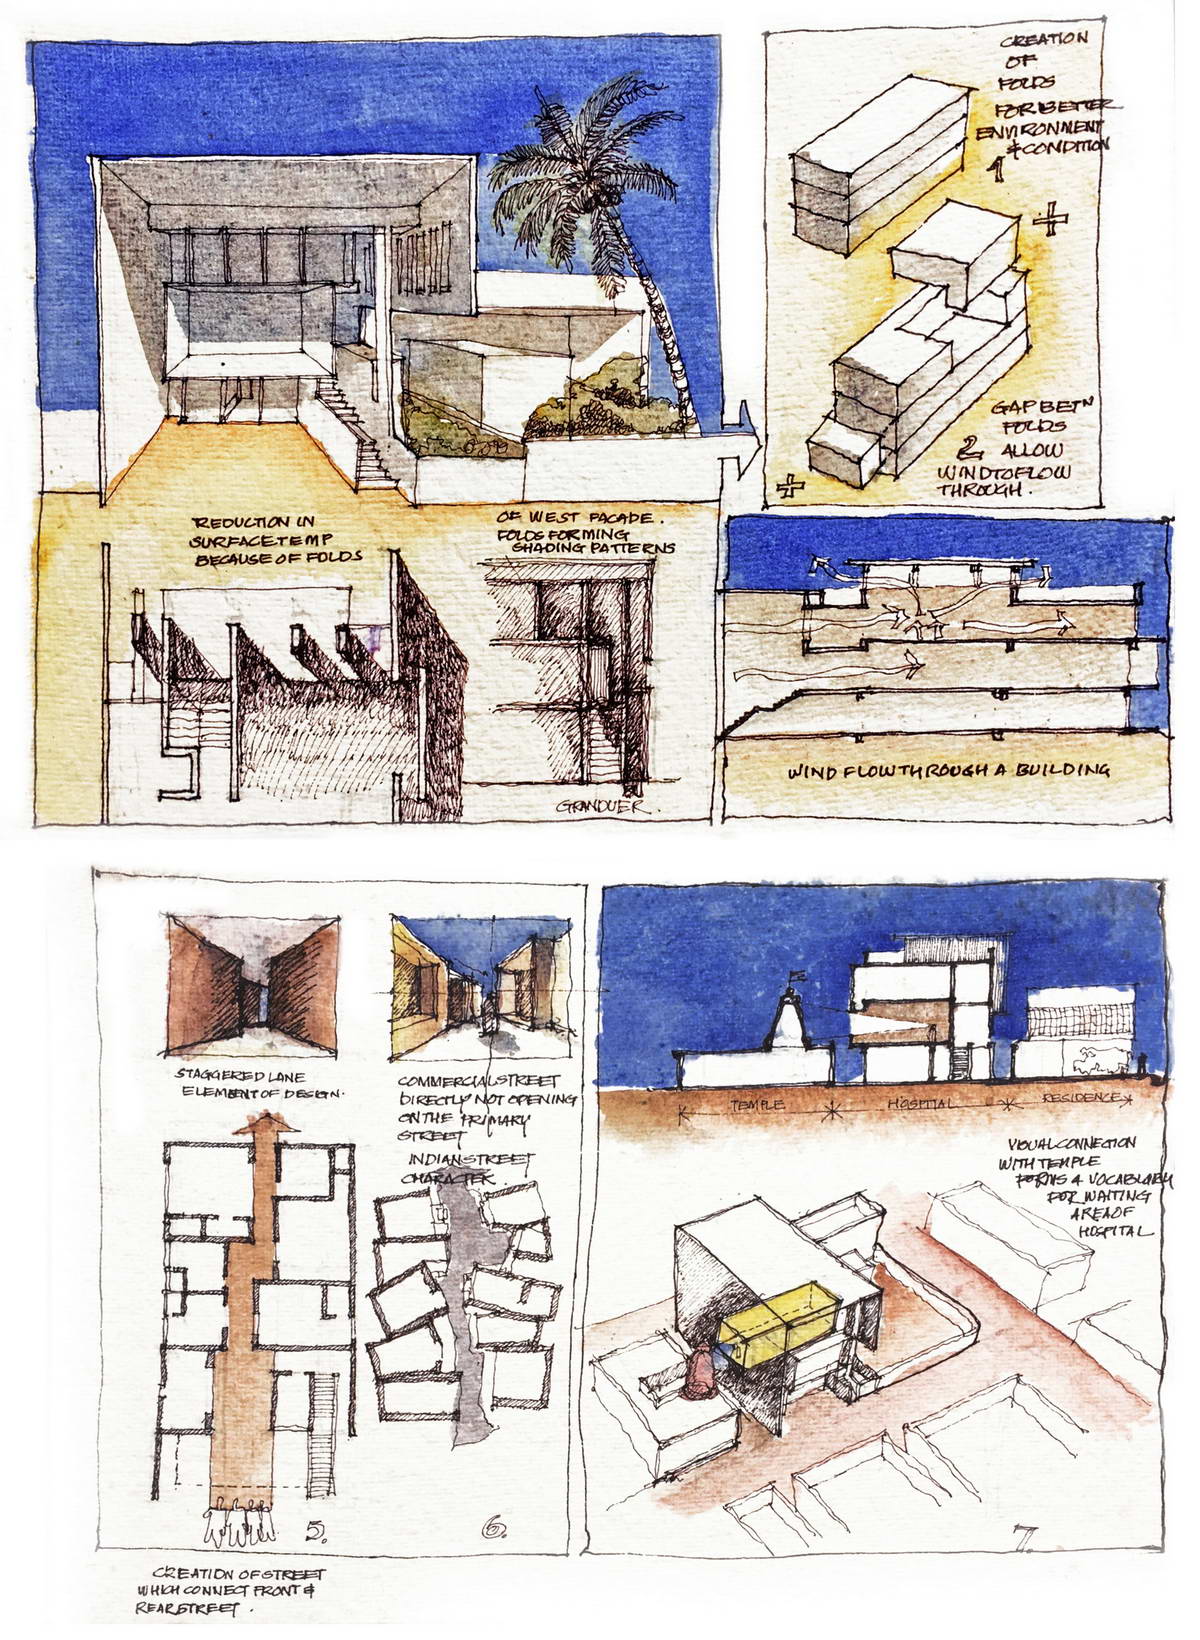 CREATION
OF
FOLDS
FOR BETTER
ENVIRONMENT
& CONDITION
1
GAP BETN
FOLDS
2 ALLOW
WIND TO FLOW
THROUGH.
REDUCTION IN
SURFACE TEMP
BECAUSE OF FOLDS
OF WEST FACADE.
FOLDS FORMING
SHADING PATTERNS
GRANDUER.
WIND FLOW THROUGH A BUILDING
STAGGERED LANE
ELEMENT OF DESIGN.
COMMERCIAL STREET
DIRECTLY NOT OPENING
ON THE PRIMARY
STREET
INDIAN STREET
CHARACTER.
5.
6.
CREATION OF STREET
WHICH CONNECT FRONT &
REAR STREET.
TEMPLE
HOSPITAL
RESIDENCE
VISUAL CONNECTION
WITH TEMPLE
FORMS A VOCABULARY
FOR WAITING
AREA OF
HOSPITAL
7.